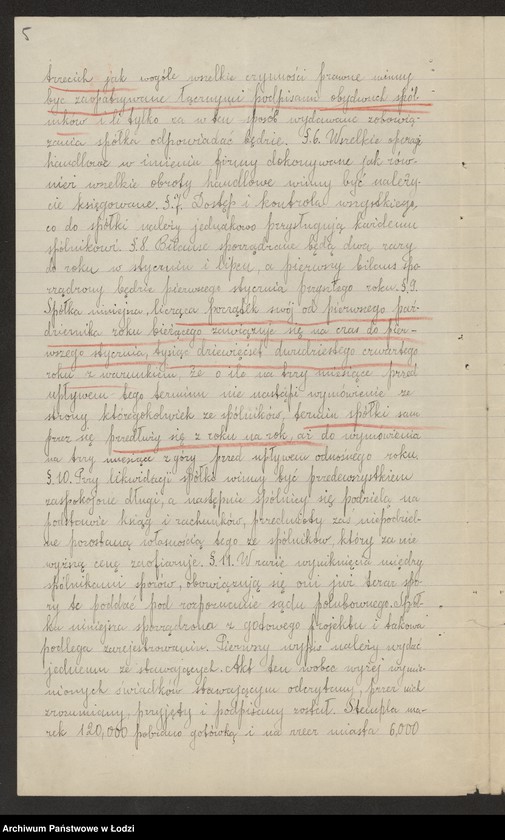 5
trzecich jak wogóle wszelkie czynności prawne winny
być zaopatrywane łącznymi podpisami obydwuch spól-
ników i li tylko za w ten sposób wydawane zobowią-
zania spółka odpowiadać będzie. §.6. Wszelkie operacje
handlowe w imieniu firmy dokonywane jak rów-
nież wszelkie obroty handlowe winny być należy-
cie księgowane. §.7. Dostęp i kontrola wszystkiego,
co do spółki należy jednakowo przysługują każdemu
spólnikowi. §.8. Bilanse sporządzane będą dwa razy
do roku w styczniu i lipcu, a pierwszy bilans spo-
rządzony będzie pierwszego stycznia przyszłego roku. §.9.
Spółka niniejsza, licząca początek swój od pierwszego paź-
dziernika roku bieżącego zawiązuje się na czas do pier-
wszego stycznia, tysiąc dziewięćset dwudziestego czwartego
roku z warunkiem, że o ile na trzy miesiące przed
upływem tego terminu nie nastąpi wymówienie ze
strony któregokolwiek ze spólników, termin spółki sam
przez się przedłuży się z roku na rok, aż do wymówienia
na trzy miesiące z góry przed upływem odnośnego roku.
§.10. Przy likwidacji spółki winny być przedewszystkiem
zaspokojone długi, a następnie spólnicy się podzielą na
podstawie ksiąg i rachunków, przedmioty zaś niepodziel-
ne pozostaną własnością tego ze spólników, który za nie
wyższą cenę zaofiaruje. §.11. W razie wyniknięcia między
spólnikami sporów, obowiązują się oni już teraz spo-
ry te poddać pod rozpoznanie sądu polubownego. Spół-
ka niniejsza sporządzona z gotowego projektu i takowa
podlega zarejestrowaniu. Pierwszy wypis należy wydać
jednemu ze stawających. Akt ten wobec wyżej wymie-
nionych świadków stawającym odczytany, przez nich
zrozumiany, przyjęty i podpisany został. Stempla ma-
rek 120,000 pobrano gotówką i na rzecz miasta 6,000
Archiwum Państwowe w Łodzi